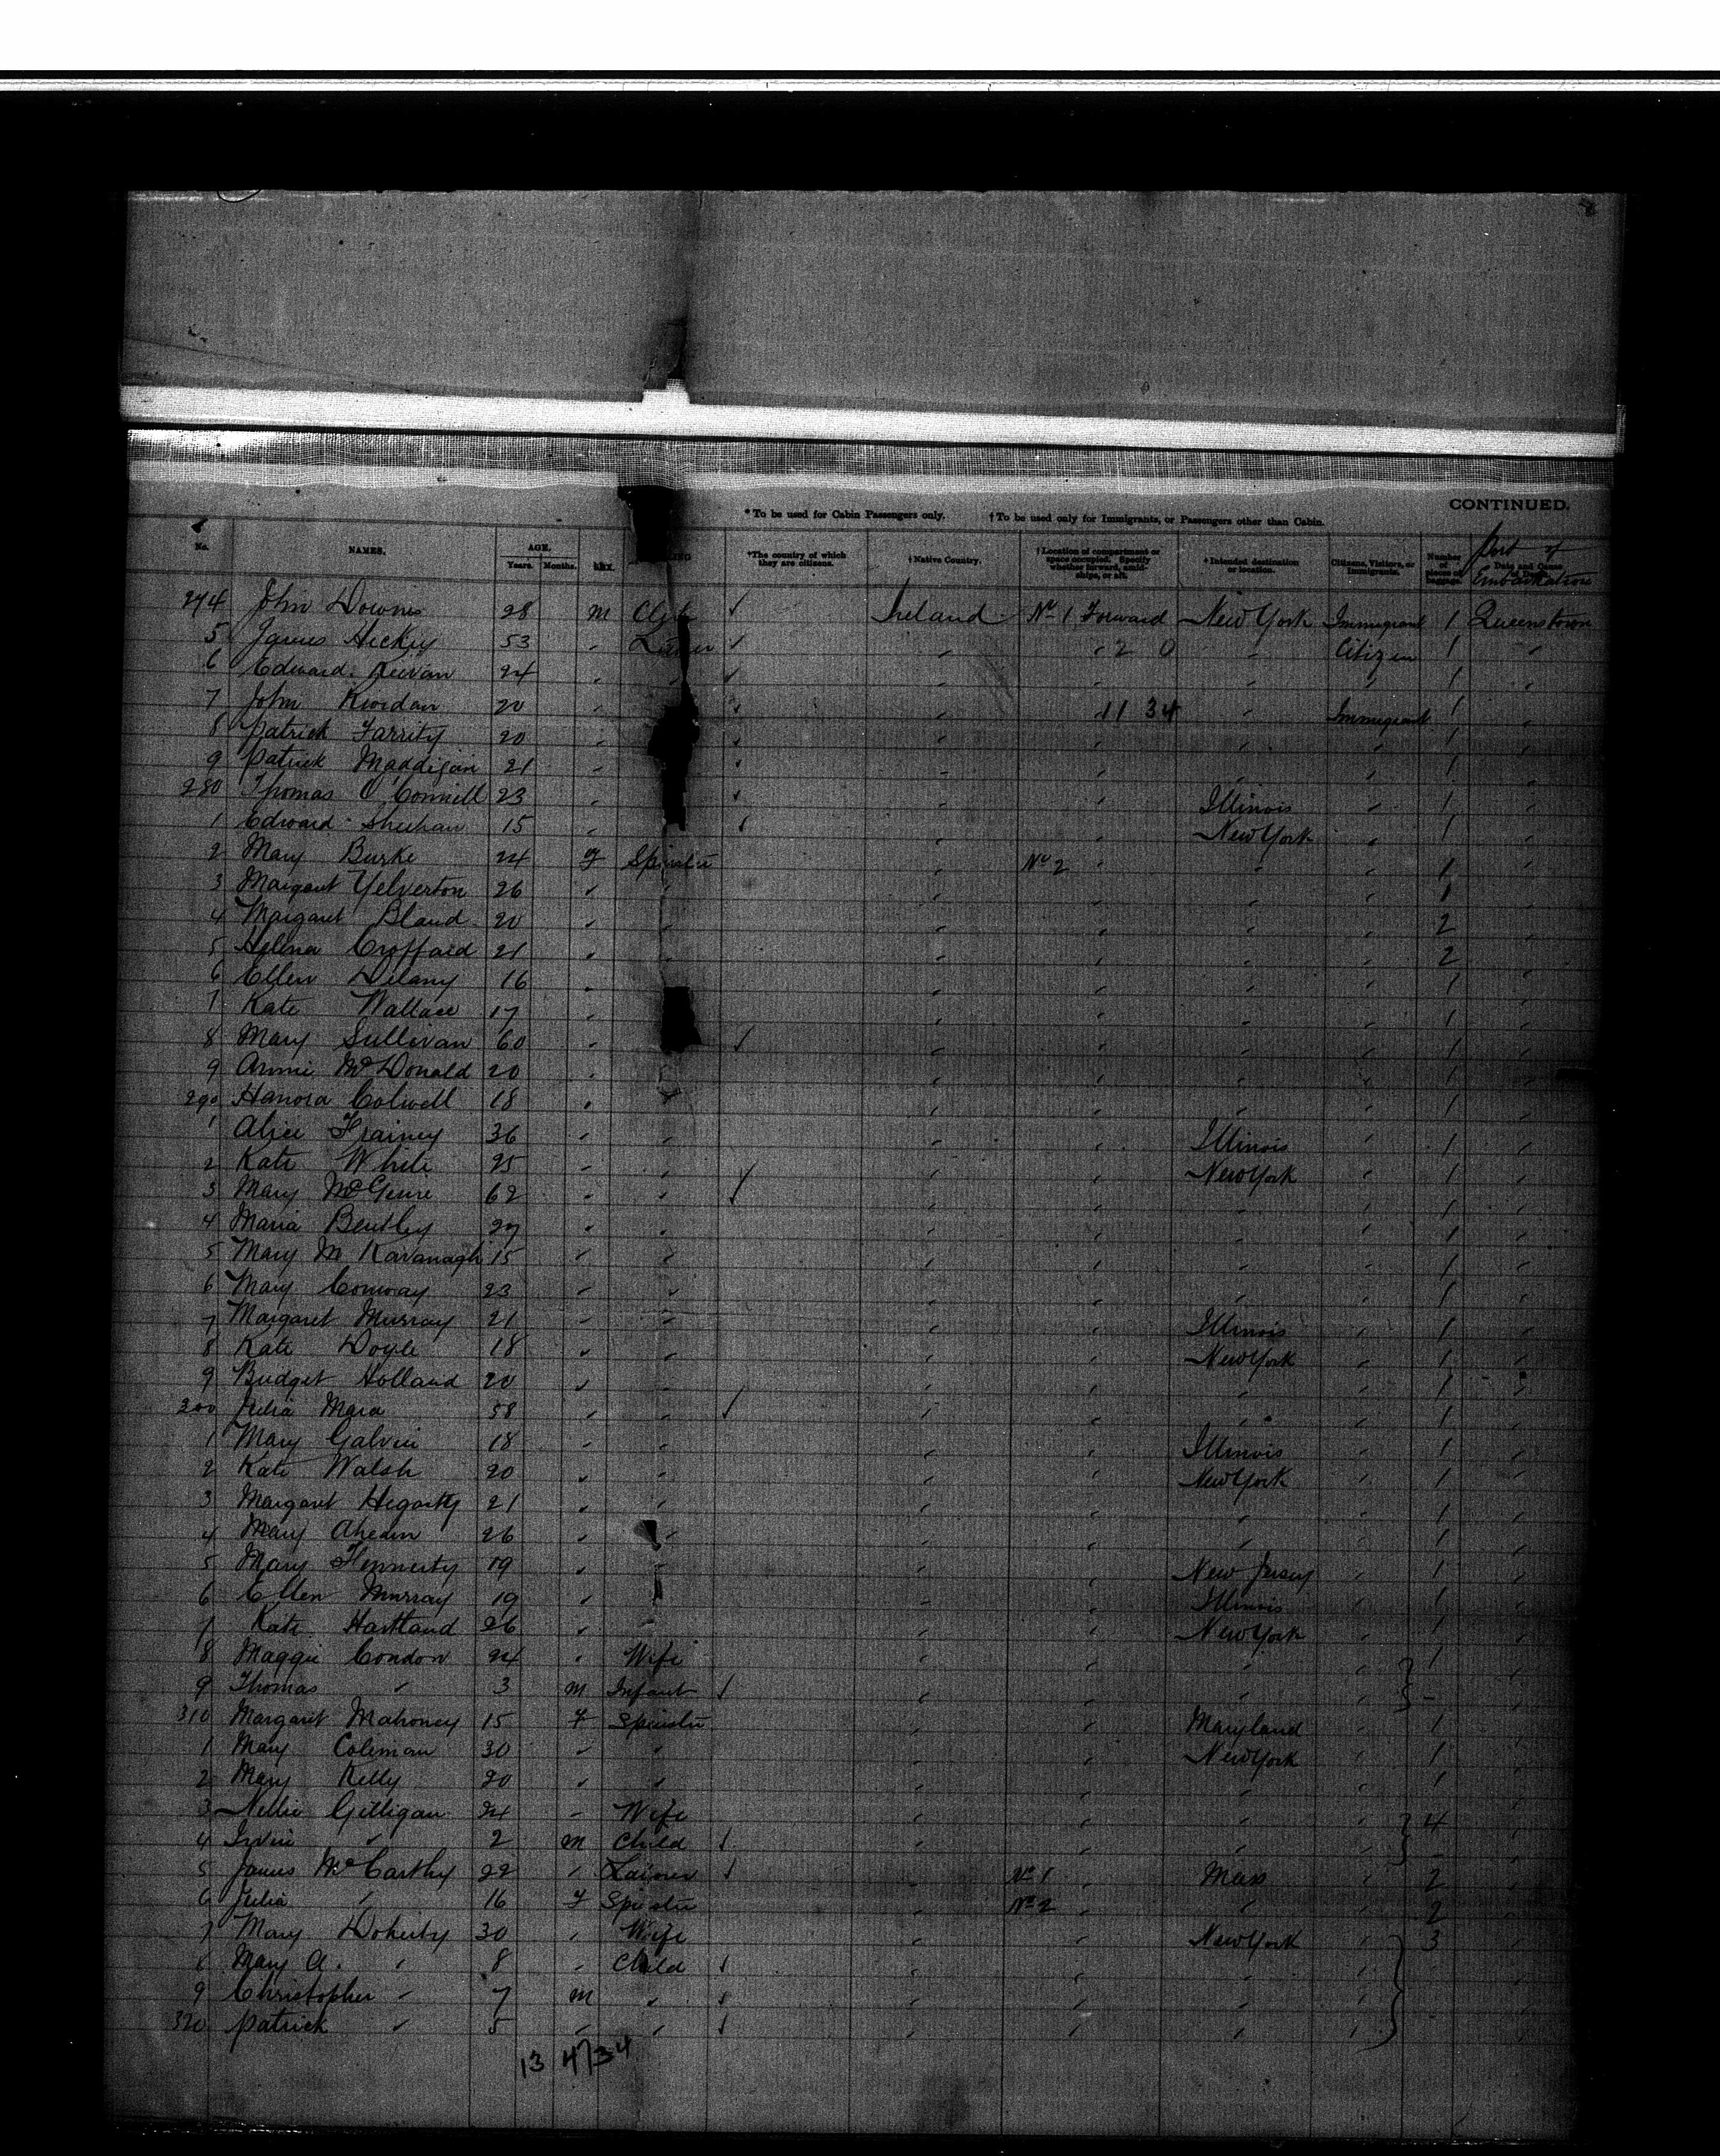 CONTINUED.
*To be used for Cabin Passengers only. †To be used only for Immigrants, or Passengers other than Cabin.
No. NAMES. AGE. Years. Months. SEX. *The country of which they are citizens. †Native Country. †Location of compartment or space occupied. Specify whether forward, amidships, or aft. †Intended destination or location. Citizens, Visitors, or Immigrants. Number of pieces of baggage. Date and Cause Port of Embarkation
274 John Downes 28 M Clerk ✓ Ireland No 1 Forward New York Immigrant 1 Queenstown
5 James Hickey 53 " ✓ " " 2 0 " Citizen 1 "
6 Edward Keevan 24 " ✓ " " " " 1 "
7 John Riordan 20 " ✓ " 11 34 " Immigrant 1 "
8 Patrick Farrity 20 " ✓ " " " " 1 "
9 Patrick Maddigan 21 " ✓ " " " " 1 "
280 Thomas O'Connell 23 " ✓ " " Illinois " 1 "
1 Edward Sheehan 15 " ✓ " " New York " 1 "
2 Mary Burke 24 F Spinster " No 2 " " " 1 "
3 Margaret Yelverton 26 " " " " " " 1 "
4 Margaret Bland 20 " " " " " " 2 "
5 Helena Croffard 21 " " " " " " 2 "
6 Ellen Delany 16 " " " " " 1 "
7 Kate Wallace 17 " " " " " 1 "
8 Mary Sullivan 60 " ✓ " " " " 1 "
9 Annie McDonald 20 " " " " " 1 "
290 Hanora Colwell 18 " " " " " 1 "
1 Alice Frainey 36 " " " " Illinois " 1 "
2 Kate White 25 " " " " New York " 1 "
3 Mary McGuire 62 " " ✓ " " " " 1 "
4 Maria Bentley 27 " " " " " " 1 "
5 Mary M Kavanagh 15 " " " " " " 1 "
6 Mary Conway 23 " " " " " " 1 "
7 Margaret Murray 21 " " " " Illinois " 1 "
8 Kate Doyle 18 " " " " New York " 1 "
9 Bridget Holland 20 " " " " " " 1 "
300 Julia Mara 58 " " ✓ " " " " 1 "
1 Mary Galvin 18 " " " " Illinois " 1 "
2 Kate Walsh 20 " " " " New York " 1 "
3 Margaret Hegarty 21 " " " " " " 1 "
4 Mary Ahearn 26 " " " " " " 1 "
5 Mary Finnerty 19 " " " " New Jersey " 1 "
6 Ellen Murray 19 " " " Illinois " 1 "
7 Kate Hartland 26 " " " " New York " 1 "
8 Maggie Condon 24 " Wife " " " " 1 "
9 Thomas " 3 M Infant ✓ " " " " - "
310 Margaret Mahoney 15 F Spinster " " Maryland " 1 "
1 Mary Coleman 30 " " " " New York " 1 "
2 Mary Kelly 20 " " " " " " 1 "
3 Nellie Gilligan 24 " Wife " " " " 4 "
4 Irvin " 2 M Child ✓ " " " " - "
5 James McCarthy 22 " Laborer ✓ " No 1 " Mass " 2 "
6 Julia " 16 F Spinster " No 2 " " " 2 "
7 Mary Doherty 30 " Wife " " New York " 3 "
8 Mary A. " 8 " Child ✓ " " " " "
9 Christopher " 7 M " ✓ " " " " "
320 Patrick " 5 " " ✓ " " " "
13 47 34